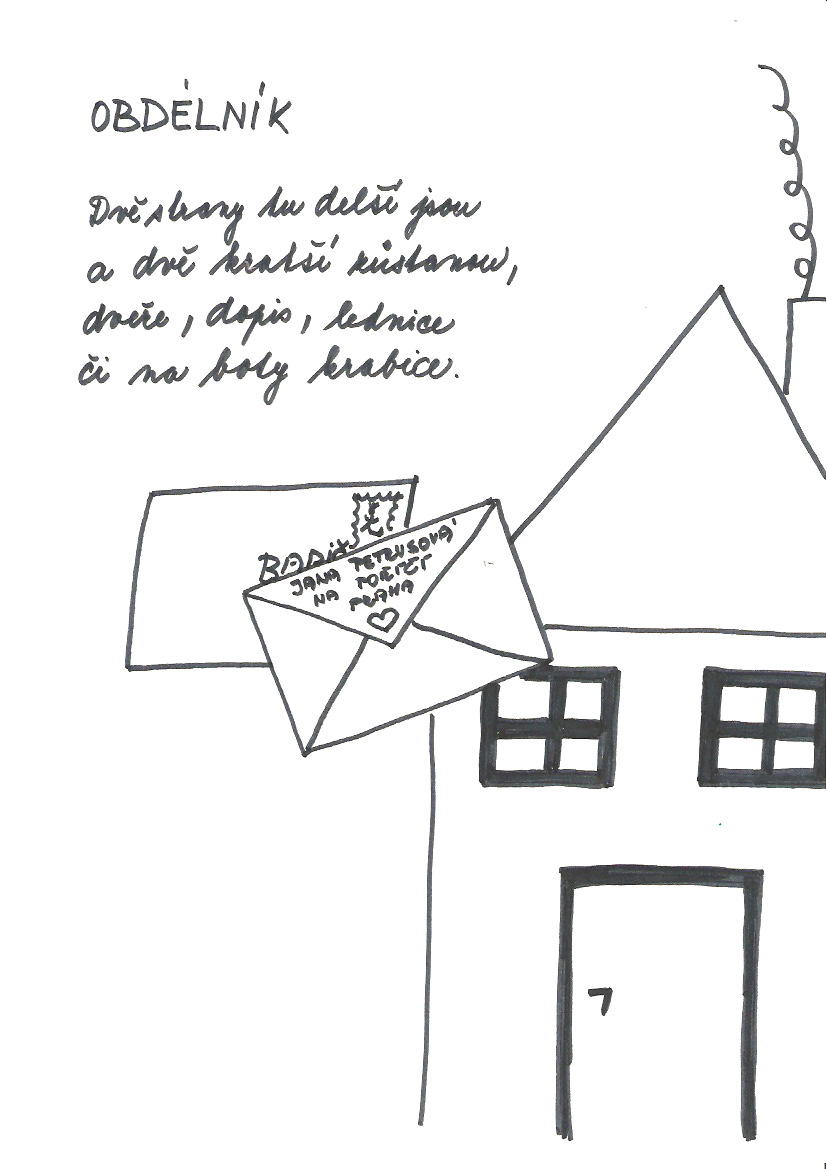 OBDÉLNÍK
Dvě strany tu delší jsou
a dvě kratší zůstanou,
dveře, dopis, lednice
či na boty krabice.
JANA PETRUSOVÁ
NA
PRAHA